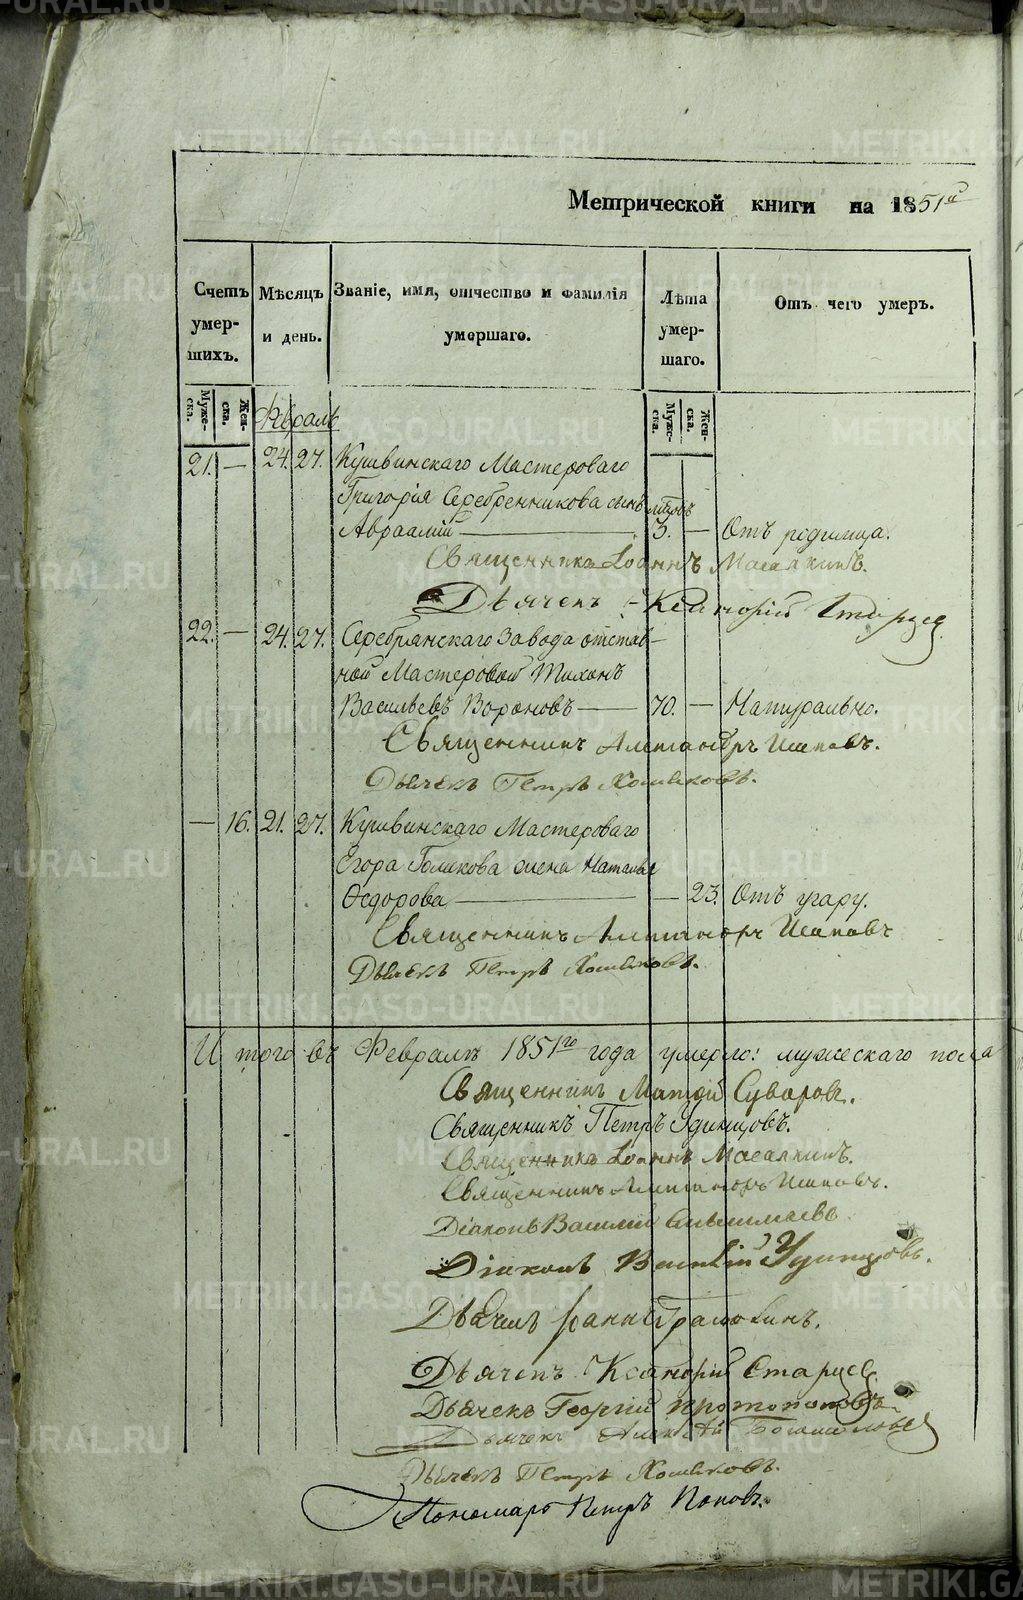 METRIKI.GASO-URAL.RU
Метрической книги на 1851й
Счетъ умер-шихъ.
Мѣсяцъ и день.
Званіе, имя, отчество и фамилія умершаго.
Лѣта умер-шаго.
Отъ чего умеръ.
Муже-ска.
Жен-ска.
Муже-ска.
Жен-ска.
Февраль
21. — 24. 27. Кушвинскаго Мастероваго
Григорія Серебренникова сынъ
Авраамій — 3. — Отъ родимца.
Священникъ Іоаннъ Масалкинъ.
Дьячекъ Ксанорій Старцев
22. — 24. 27. Серебрянскаго Завода отстав-
ной Мастеровой Тихонъ
Васильевъ Вороновъ — 70. — Натурально.
Священникъ Александръ Исаковъ.
Дьячекъ Петръ Хомяковъ.
— 16. 21. 27. Кушвинскаго Мастероваго
Егора Голикова жена Наталья
Ѳедорова — — 23. Отъ угару.
Священникъ Александръ Исаковъ
Дьячекъ Петръ Хомяковъ.
Итого въ Февралѣ 1851го года умерло: мужескаго пола
Священникъ Матѳій Суваровъ.
Священникъ Петръ Удинцовъ.
Священникъ Іоаннъ Масалкинъ.
Священникъ Александръ Исаковъ.
Діаконъ Василій
Діаконъ Василій Удинцовъ.
Дьячекъ Іоаннъ
Дьячекъ Ксанорій Старцев
Дьячекъ Георгій Протопоповъ
Дьячекъ Алексѣй
Дьячекъ Петръ Хомяковъ.
Пономарь Петръ Поповъ.